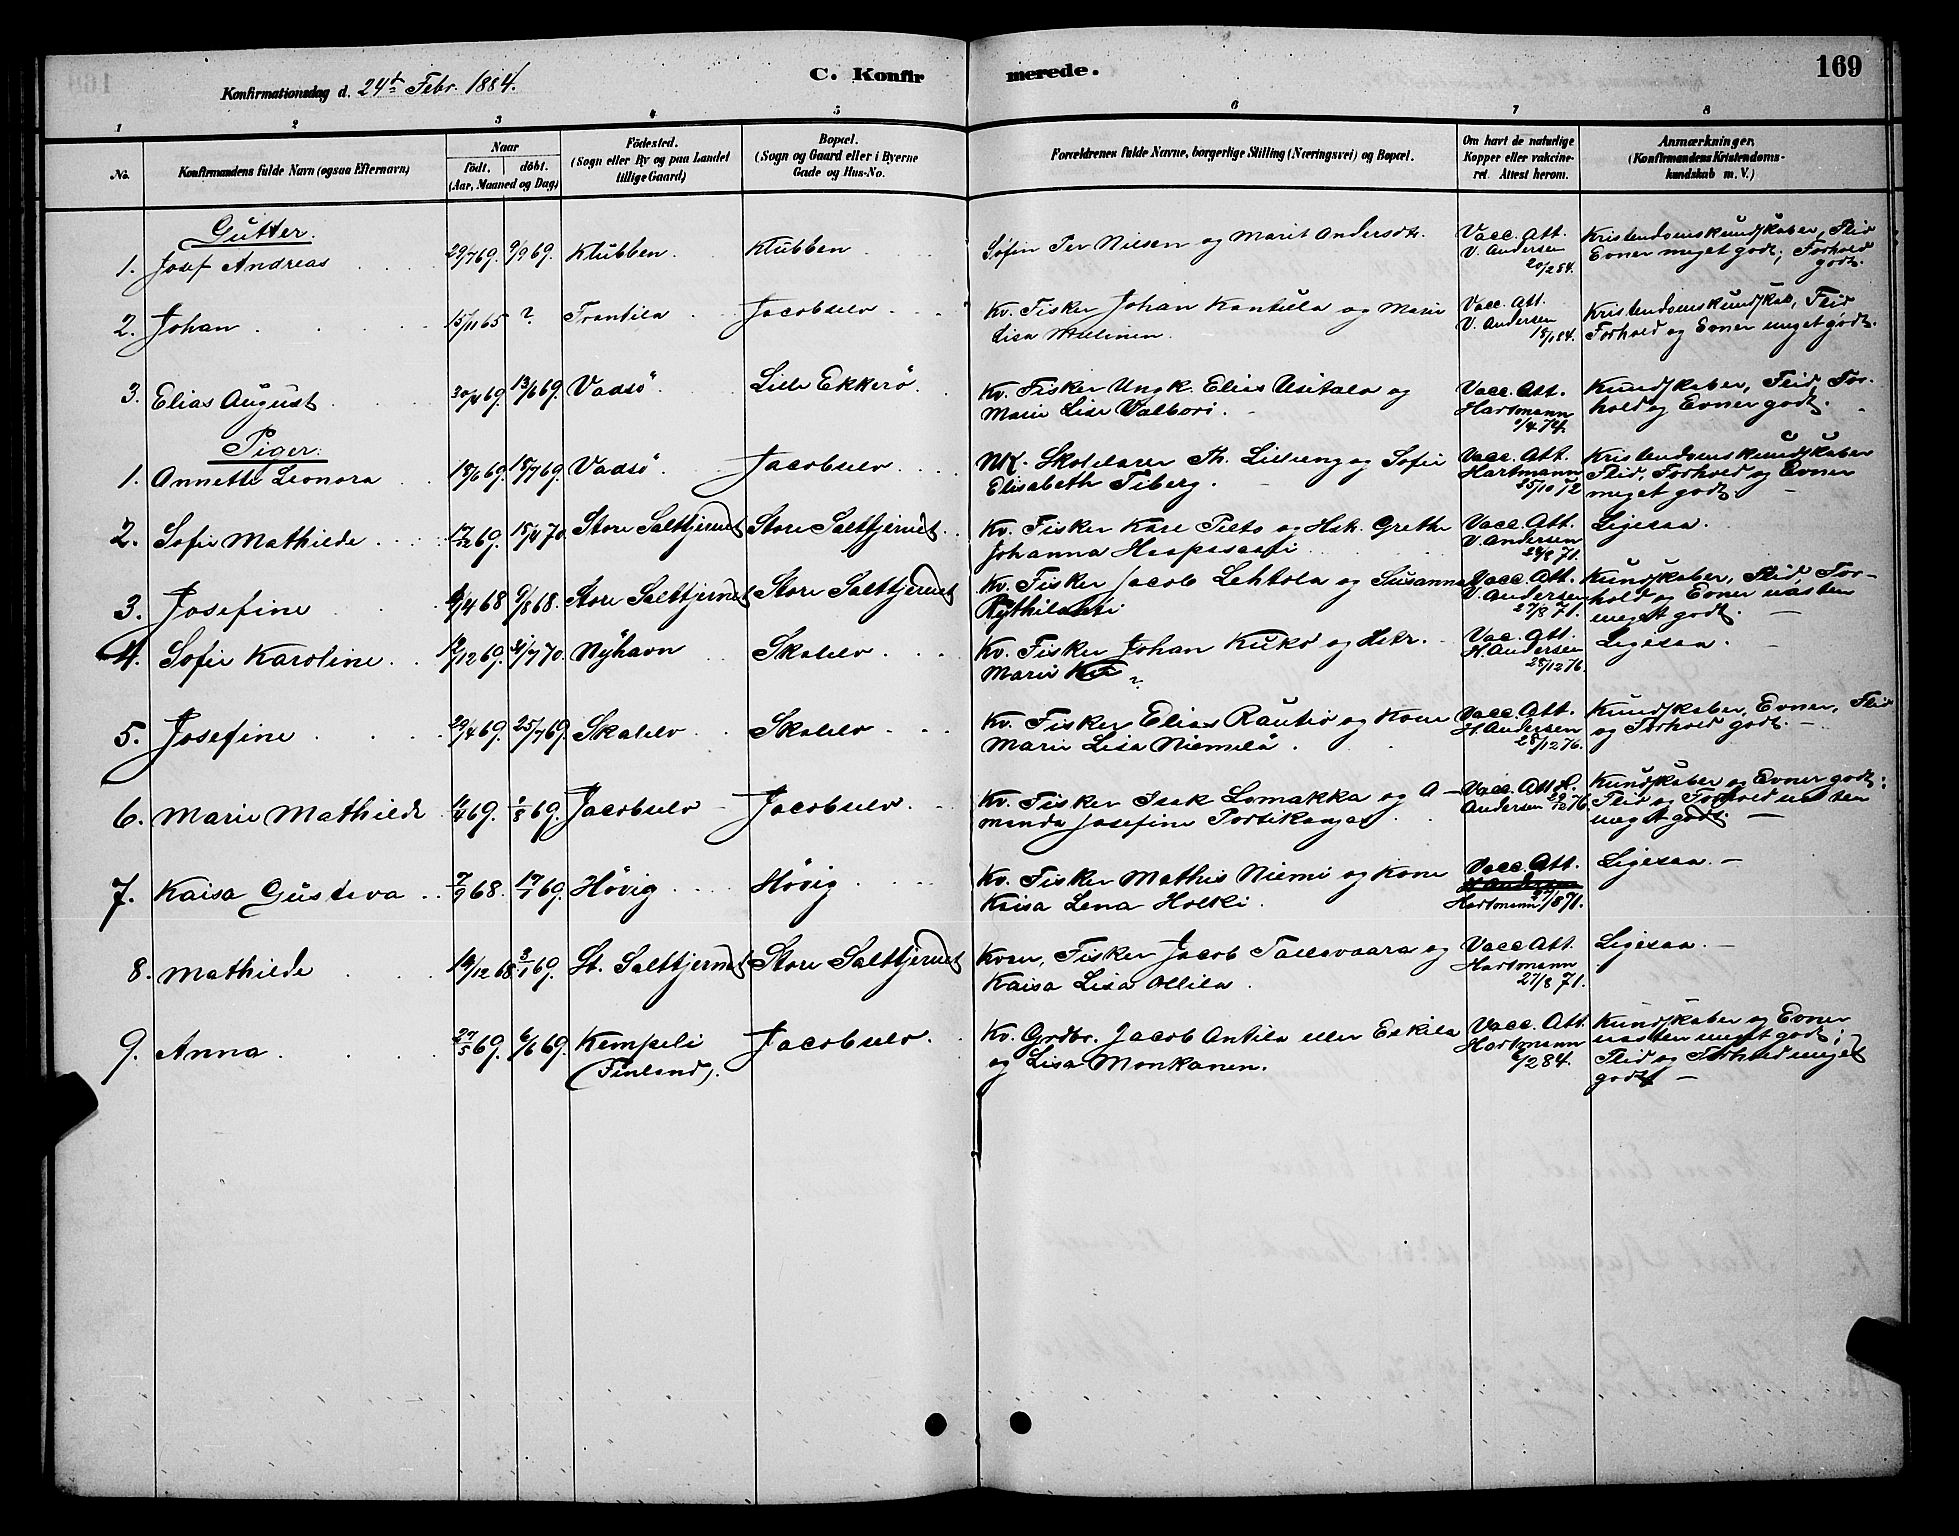 C. Konfirmerede.
169
Konfirmationsdag d. 24de Febr. 1884.
1 2 3 4 5 6 7 8
No.
Konfirmandens fulde Navn (ogsaa Efternavn)
Naar
födt. döbt.
(Aar, Maaned og Dag)
Födested.
(Sogn eller By og paa Landet
tillige Gaard)
Bopæl.
(Sogn og Gaard eller i Byerne
Gade og Hus-No.
Forældrenes fulde Navne, borgerlige Stilling (Næringsvei) og Bopæl.
Om havt de naturlige
Kopper eller vakcine-
ret. Attest herom.
Anmærkninger,
(Konfirmandens Kristendoms-
kundskab m. V.)
Gutter.
1. Josef Andreas 29/7 69. 9/9 69. Klubben Klubben
Søfin Per Nilsen og Marit Andersdtr.
Vacc. Att.
V. Andersen
20/2 84.
Kristendomskundskaber, Flid
Evner meget godt; Forhold
godt.
2. Johan 15/11 65 ? Frantila Jacobselv
Kv. Fisker Johan Kantula og Marie
Lisa
Vacc. Att.
V. Andersen
18/1 84.
Kristendomskundskab, Flid
Forhold og Evner meget godt.
3. Elias August 30/4 69. 13/6 69. Vadsö Lille Ekkerö
Kv. Fisker Ungk. Elias Usitalo og
Marie Lise Valbori.
Vacc. Att.
Hartmann
/4 74.
Kundskaber, Flid, For-
hold og Evner godt.
Piger.
1. Annette Leonora 18/6 69. 18/7 69. Vadsö Jacobselv
NK. Skolelærer Th. Lilleeng og Sofie
Elisabeth Fiberg.
Vacc. Att.
Hartmann
25/10 72
Kristendomskundskaber
Flid, Forhold og Evner
meget godt —
2. Sofie Mathilde 17/12 69. 15/4 70. Store Salttjernet Store Salttjernet
Kv. Fisker Kåre Pieto og Hsk. Grethe
Johanna Haapasaari
Vacc. Att.
V. Andersen
28/8 71.
Ligesaa.
3. Josefine /4 68 9/8 68. Store Salttjernet Store Salttjernet
Kv. Fisker Jacob Lehtola og Susanna
Vacc. Att.
V. Andersen
27/8 71.
Kundskaber, Flid, For-
hold og Evner næsten
meget godt. —
4. Sofie Karoline 12/12 69. /7 70. Nyhavn Skalelv
Kv. Fisker Johan Kuko og Hstr.
Marie
?
Vac. Att.
H. Andersen
28/12 76.
Ligesaa. —
5. Josefine 29/4 69. 25/7 69. Skalelv Skalelv
Kv. Fisker Elias Rautio og Kone
Marie Lisa Niemelä.
Vacc. Att.
H. Andersen
28/12 76.
Kundskaber, Evner, Flid
og Forhold godt. —
6. Marie Mathilde /4 69. /8 69. Jacobselv Jacobselv
Kv. Fisker Isak Lomakka og A-
manda Josefine Portikangas
Vacc. Att. H.
Andersen 28/12 76.
Kundskaber og Evner godt:
Flid og Forhold næsten
meget godt. —
7. Kaisa Gustava 7/9 68. 17/1 69. Høvig Høvig
Kv. Fisker Mathis Niemi og Kone
Kaisa Lena Holtki.
Vacc. Att.
Hartmann 27/8 71.
Ligesaa. —
8. Mathilde 19/12 68. 3/1 69. St. Salttjernet Store Salttjernet
Kven, Fisker Jacob Tallevaara og
Kaisa Lisa Ollila.
Vacc. Att.
Hartmann
27/8 71.
Ligesaa. —
9. Anna 27/5 69. 6/6 69. Kempeli Jacobselv.
(Finland).
Kv. Grdbr. Jacob Antila eller Eskila
og Lisa Monkanen.
Vacc. Att.
Hartmann
/2 84.
Kundskaber og Evner
næsten meget godt;
Flid og Forhold meget
godt —